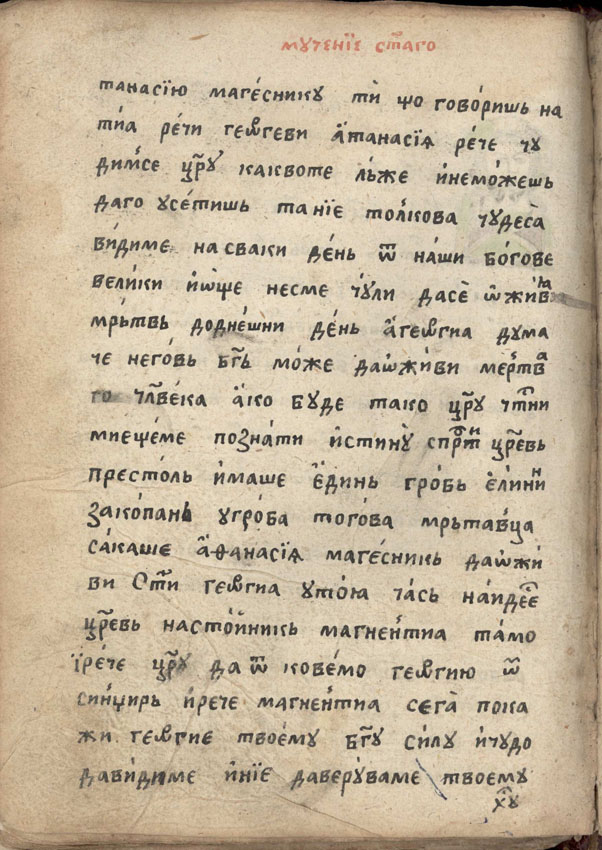 мꙋчен́їе ст҃аго
танасїю маге́снику ти̑ що гово́ришь на
ти́а ре́чи геѡ́ргеви а҆танасїѧ рече чу
ди́мсе цр҃ꙋ каквоте лъ́же и҆немо́жешь
даго усе́тишь та нїе то́лкова чꙋдеса̀
ви́диме на сваки де́нь ѿ на́ши бо́гове
вели́ки и҆ѡ́ще несме чу́ли дасѐ ѡ҆жи́ви
мрътвь до дне́шни де́нь а҆геѡ́ргиа дꙋма
че него́вь бг҃ь мо́же даѡ҆жи́ви ме́ртва
го чл҃ве́ка а́ко бꙋде тако цр҃ꙋ чт҃ни
мие щеме позна́ти и҆стинꙋ̀ цр҃евь
престо́ль и҆маше є҆ди́нь гро́бь є҆лини
закопань у гро́ба тогова мрътавца
са́каше а҆ѳана́сїѧ маге́сникь даѡ҆жи́
ви Ст҃и геѡ́ргиа у то́ꙗ ча́сь наи́дее
цр҃евь насто́йникь магне́нтиа та́мо
їре́че цр҃ꙋ да ѿ кове́мо геѡ́ргию ѿ
синџирь и҆рече магне́нтиа сега̀ пока
жи геѡ́ргие твоемꙋ бг҃ꙋ си́лꙋ и҆чꙋ́до
дави́диме и҆нїе даверꙋваме твоемꙋ
хꙋ҃